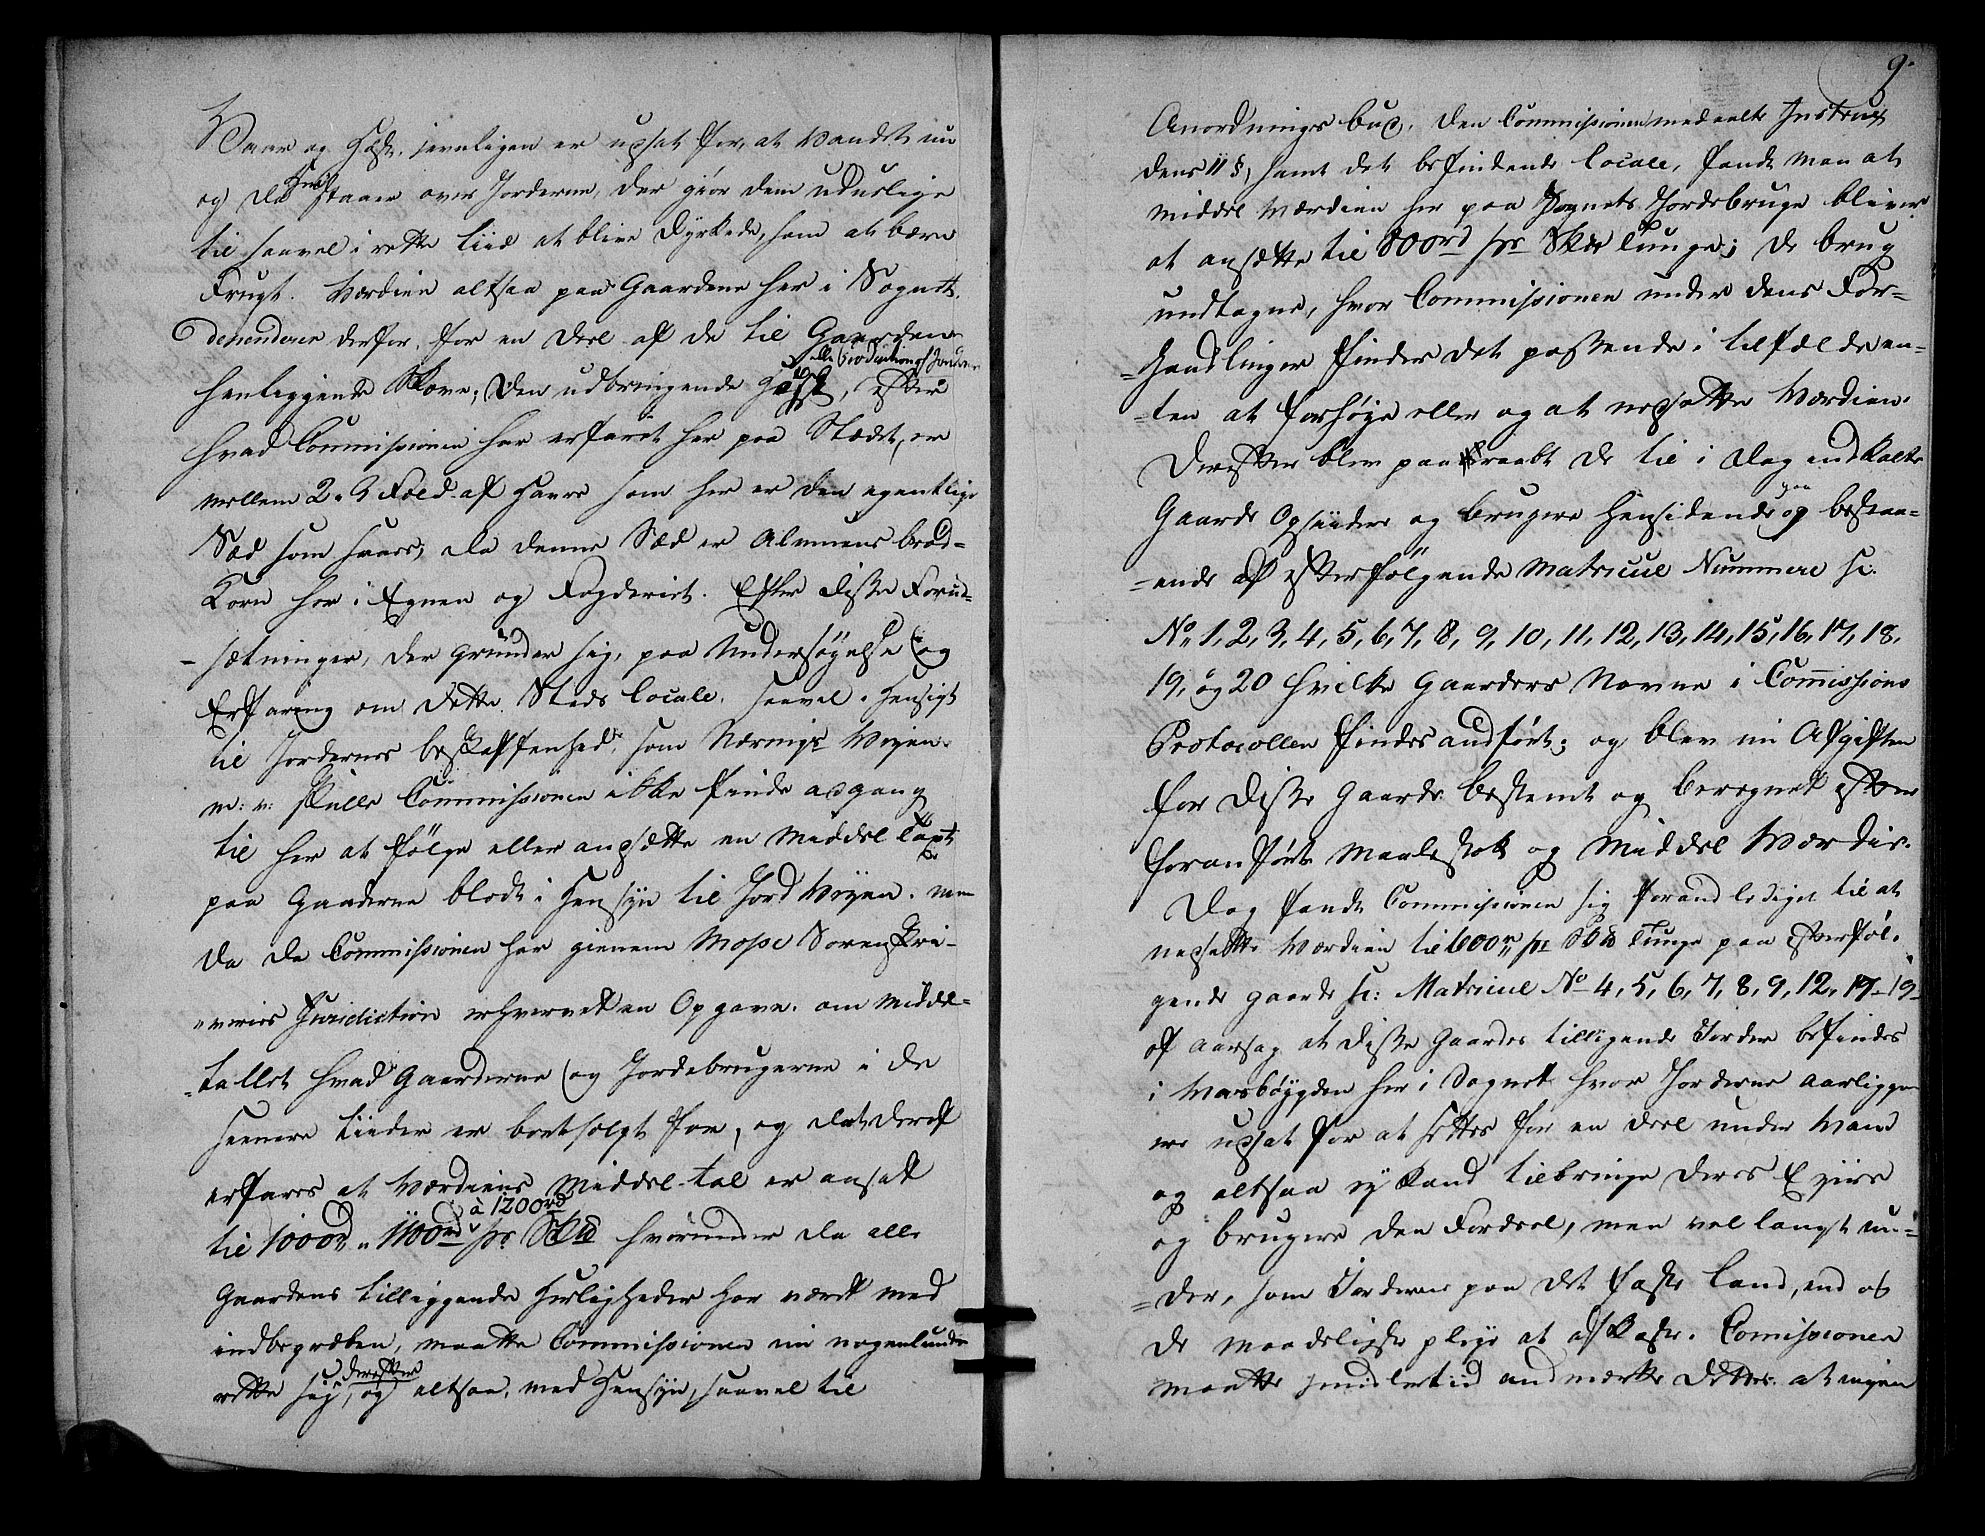 Vaar og Høst, jevnligen er udsat for, at Vandet nu
og da staaer over Jorderne, der giør dem uduelige
til saavel i rette Tiid at blive dyrkede, som at bære
Frugt. Værdien altsaa paa Gaardene her i Sognet,
dependerer derfor, for en Deel af de til Gaarden
eller Production af Jorden
henliggende Skove; Den udbringende Høst, efter
hvad Commissionen har erfaret her paa Stædet, er
mellem 2 a 3 Fold af Havre som her er den egentlige
Sæd som saaes, da denne Sæd er Almuens Brød-
Korn her i Egnen og Fogderiet. Efter disse Forud-
-sætninger, der grunder sig, paa Undersøgelse og
Erfaring om dette Steds Locale, saavel i Hensigt
til Jordernes beskaffenhed, som Nærings Veyen
m: v: skulle Commissionen ikke finde adgang
til her at følge eller ansætte en Middel Taxt
paa Gaardene blodt i Hensyn til Jord Veyen. men
da Commissionen har gienem Moss Sorenskri-
"veries Jurisdiction erhvervet en Opgave, om Middel=
=tallet hvad Gaarderne og Jordebrugerne i de
seenere Tiider er bortsolgt for, og det deraf
erfares at Værdiens Middel-tal er ansat
à 1200rd
til 1000rd " 1100rd pr Skd hvorunder da alle
Gaardens tilliggende Herligheder har været med
indbegreben, maatte Commissionen nu nogenlunde
derefter
rette sig, og altsaa, med Hensyn, saavel til
9.
Anordnings bud, den Commissionen meddeelte Instrux
dens 11 §, samt det befindende Locale, fandt man at
middel Værdien her paa Sognets Jordebruge bliver
at ansætte til 800rd pr Skd Tunge; de brug
undtagne, hvor Commissionen under dens For=
=handlinger finder det passende i tilfælde en-
=ten at forhøye eller og at nedsætte Værdien.
Derefter blev paaraabt de til i Dag indkalte
Gaarde Opsiddere og brugere henhidende og bestaa=
-ende af efterfølgende Matricul Nummere sc.
No 1, 2, 3, 4, 5, 6, 7, 8, 9, 10, 11, 12, 13, 14, 15, 16, 17, 18,
19, og 20 hvilke Gaarders Navne i Commissions
Protocollen findes andført; og blev nu Afgiften
for disse Gaarde bestemt og beregnet efter
foran førte Maalestok og Middel Værdie.
Dog fandt Commissionen sig forandlediget til at
nedsætte Værdien til 600rd pr Skd Tunge paa efterføl.
gende Gaarde sc: Matricul No 4, 5, 6, 7, 8, 9, 12, 17 19
af Aarsag at disse Gaardes tilligende Jorder befindes
i her i Sognet hvor Jorderne aarligen
er udsat for at sættes for en Deel under Vand
og altsaa ey kand tilbringe deres Eyere
og brugere den Fordeel, men vel langt un=
=der, som Jorderne paa det faste Land, end og
de maadeligste pleye at afkaste. Comissionen
maatte imidlertid andmærke dette at ingen